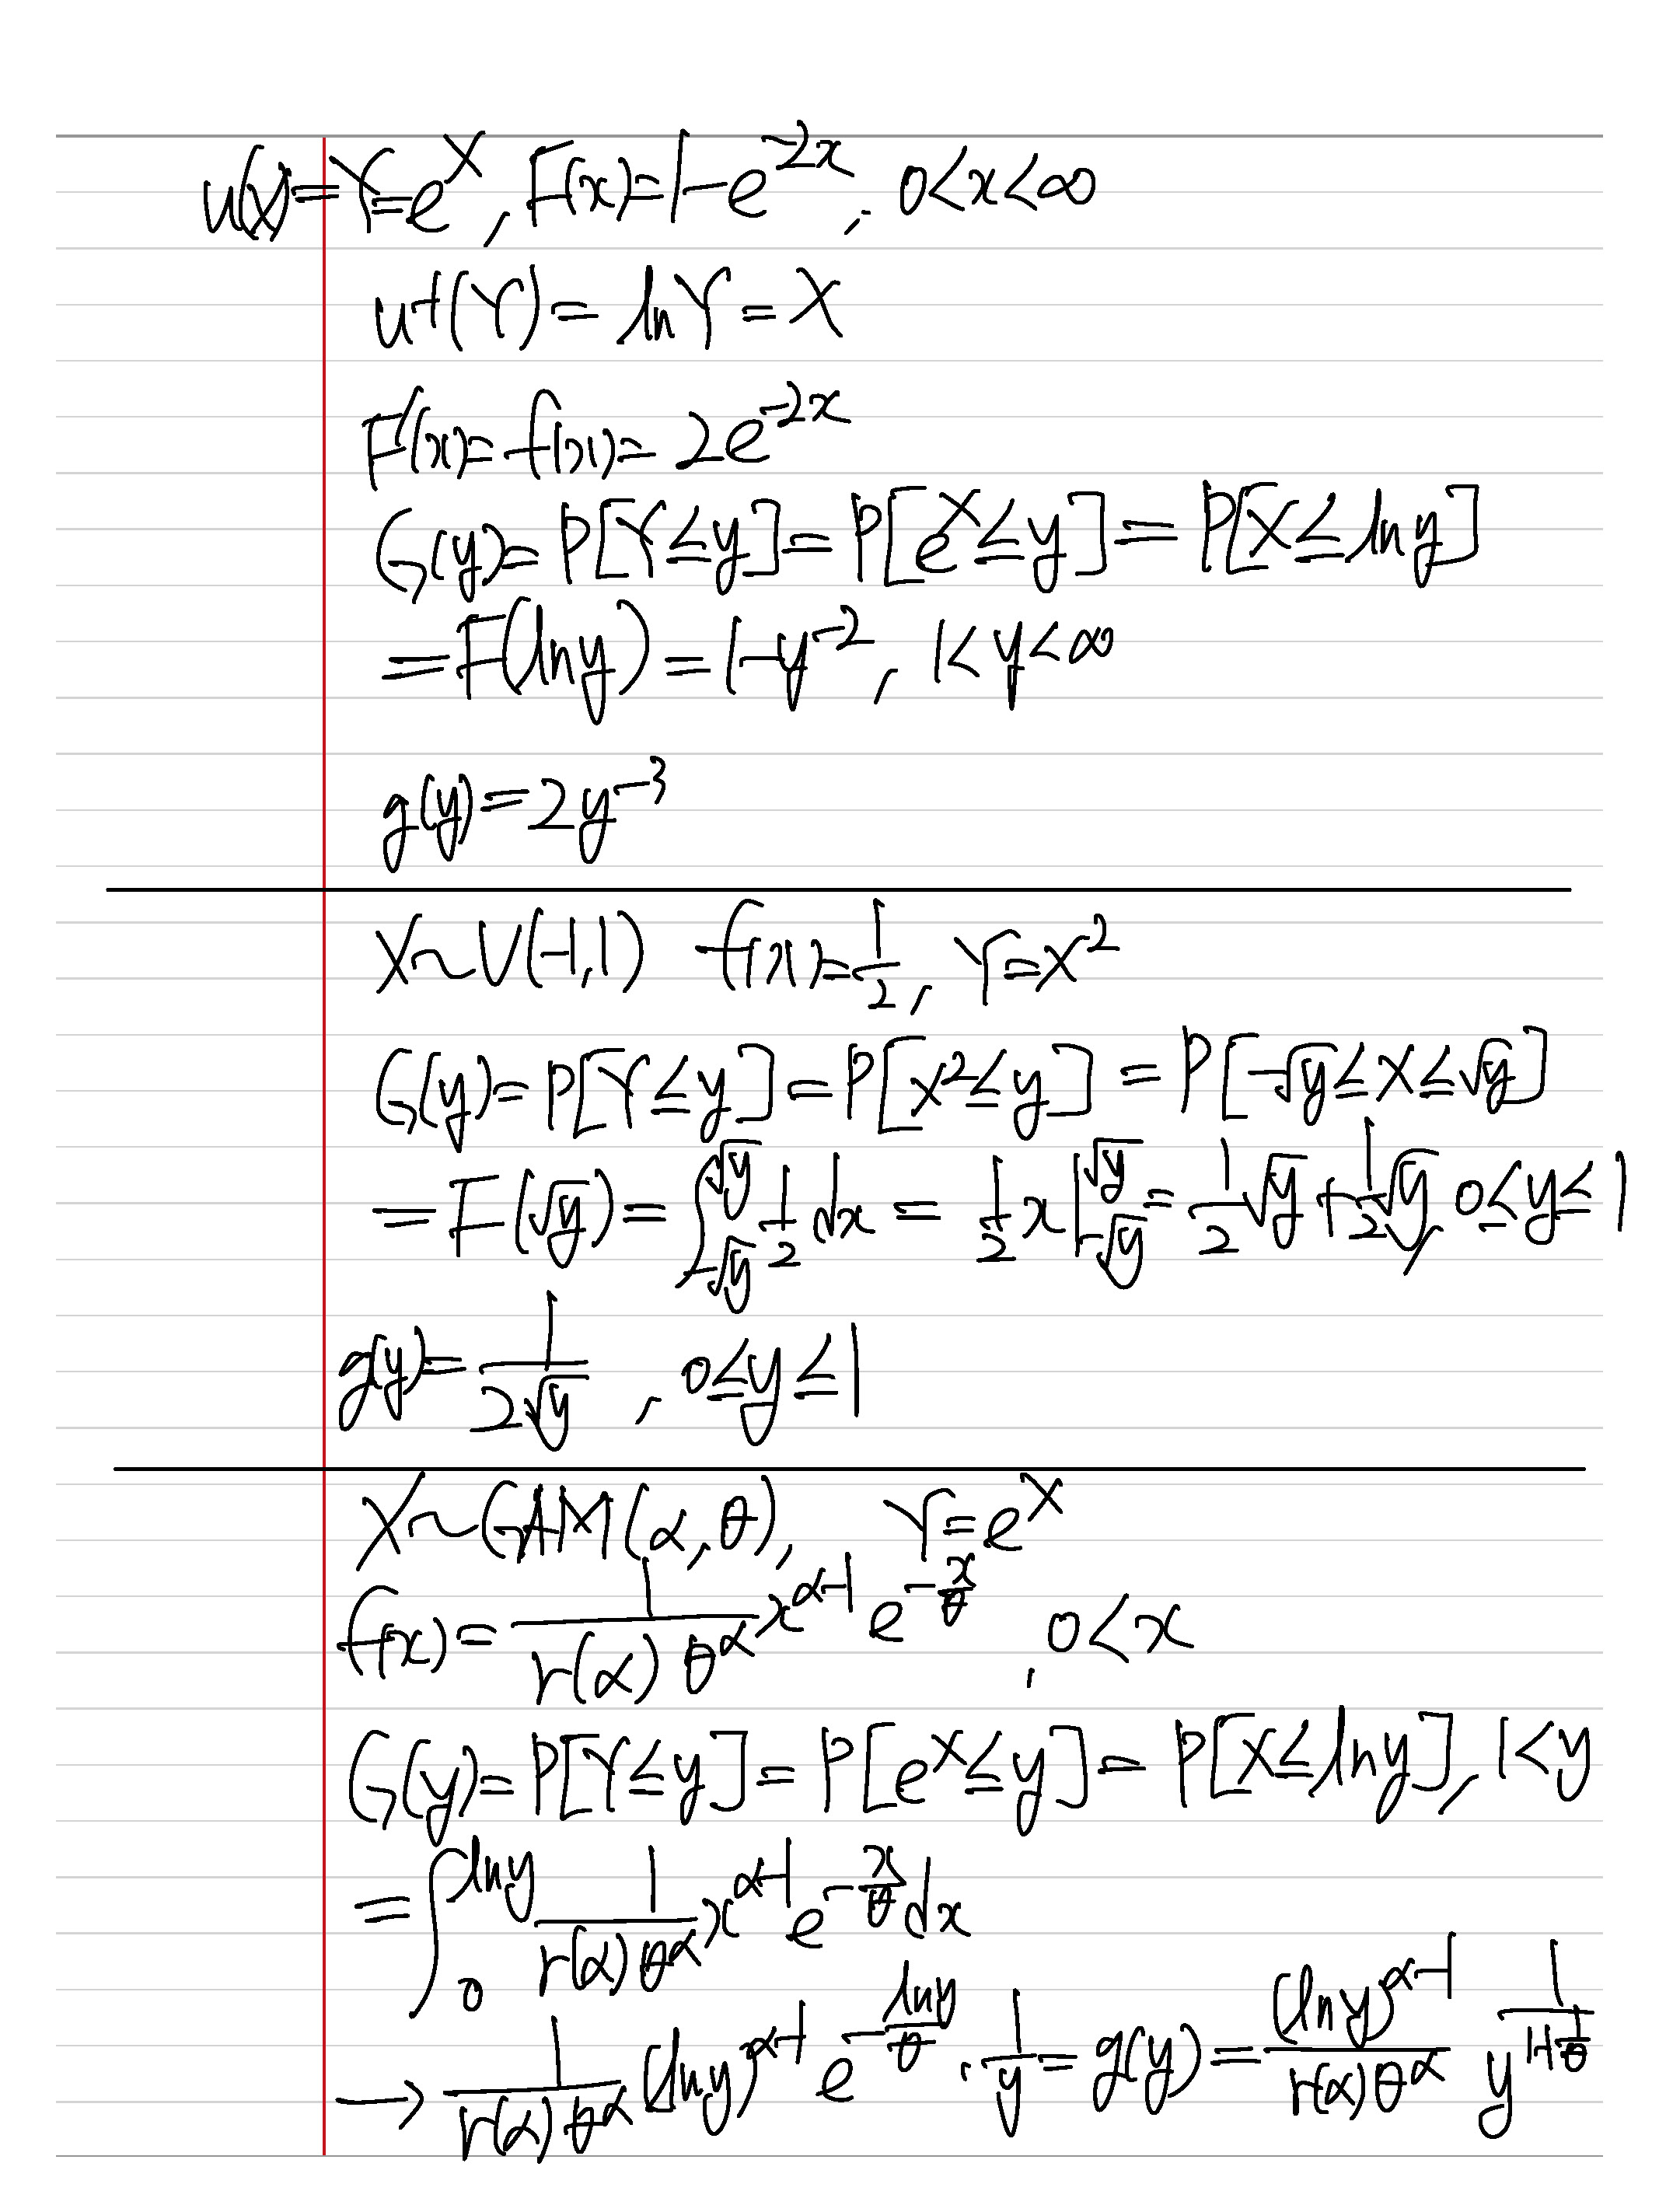 u(x)=Y=e^X, F(x)=1-e^{-2x}, 0<x<∞
u^{-1}(Y)=lnY=X
F'(x)=f(x)=2e^{-2x}
G(y)=P[Y≤y]=P[e^X≤y]=P[X≤lny]
=F(lny)=1-y^{-2}, 1<y<∞
g(y)=2y^{-3}
X~U(-1,1) f(x)=\frac{1}{2}, Y=X^2
G(y)=P[Y≤y]=P[X^2≤y]=P[-√y≤X≤√y]
=F(√y)=∫_{-√y}^{√y} \frac{1}{2}dx=\frac{1}{2}x|_{-√y}^{√y}=\frac{1}{2}√y+\frac{1}{2}√y, 0≤y≤1
g(y)=\frac{1}{2√y}, 0≤y≤1
X~GAM(α,θ), Y=e^X
f(x)=\frac{1}{r(α)θ^α}x^{α-1}e^{-\frac{x}{θ}}, 0<x
G(y)=P[Y≤y]=P[e^X≤y]=P[X≤lny], 1<y
=∫_0^{lny}\frac{1}{r(α)θ^α}x^{α-1}e^{-\frac{x}{θ}}dx
→\frac{1}{r(α)θ^α}(lny)^{α-1}e^{-\frac{lny}{θ}}·\frac{1}{y}=g(y)=\frac{(lny)^{α-1}}{r(α)θ^α}\frac{1}{y^{1+\frac{1}{θ}}}